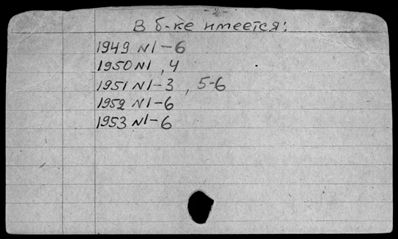 -2-
В б-ке имеется:
1949 №1-6
1950 №1, 4
1951 №1-3, 5-6
1952 №1-6
1953 №1-6